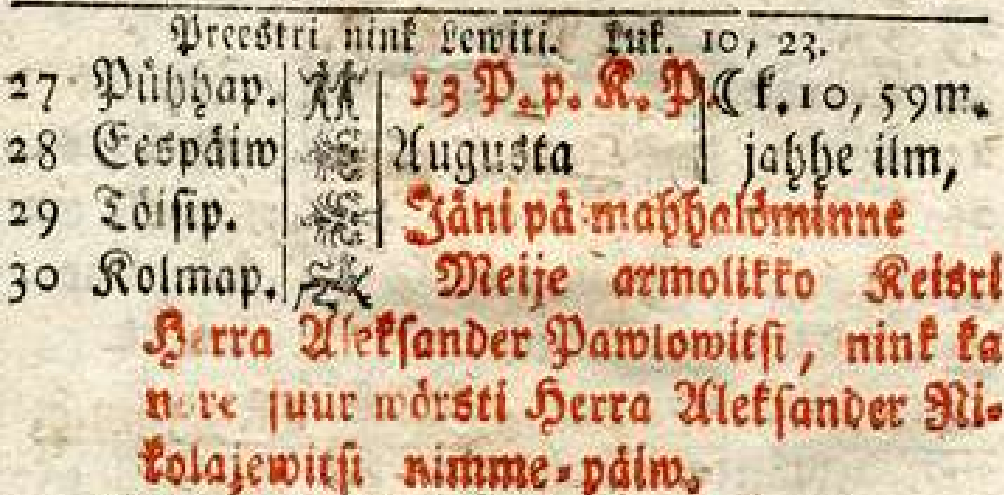 Preestri nink Lewiti. Luk. 10, 23.
27 Pühhap. 13 P. p. K. P. ☾ k. 10, 59m.
28 Eespäiw Augusta jahhe ilm,
29 Töisip. Jäni pä mahhalöminne
30 Kolmap. Meije armolikko Keisri
Herra Aleksander Pawlowitsi, nink ka
nore juur wörsti Herra Aleksander Ni-
kolajewitsi nimme-päiw.